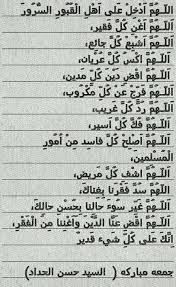 اللَّهُمَّ أَدْخِلْ عَلَى أَهْلِ الْقُبُورِ السُّرُورَ
اَللَّهُمَّ أَغْنِ كُلَّ فَقِيرٍ،
اَللَّهُمَّ أَشْبِعْ كُلَّ جَائِعٍ،
اَللَّهُمَّ اكْسُ كُلَّ عُرْيَانٍ،
اَللَّهُمَّ اقْضِ دَيْنَ كُلِّ مَدِينٍ،
اَللَّهُمَّ فَرِّجْ عَنْ كُلِّ مَكْرُوبٍ،
اَللَّهُمَّ رُدَّ كُلَّ غَرِيبٍ،
اَللَّهُمَّ فُكَّ كُلَّ أَسِيرٍ،
اَللَّهُمَّ أَصْلِحْ كُلَّ فَاسِدٍ مِنْ أُمُورِ
الْمُسْلِمِينَ،
اَللَّهُمَّ اشْفِ كُلَّ مَرِيضٍ،
اللَّهُمَّ سُدَّ فَقْرَنَا بِغِنَاكَ،
اَللَّهُمَّ غَيِّرْ سُوءَ حَالِنَا بِحُسْنِ حَالِكَ،
اَللَّهُمَّ اقْضِ عَنَّا الدَّيْنَ وَأَغْنِنَا مِنَ الْفَقْرِ،
إِنَّكَ عَلَى كُلِّ شَيْءٍ قَدِيرٌ
جمعه مباركه ( السيد حسن الحداد )